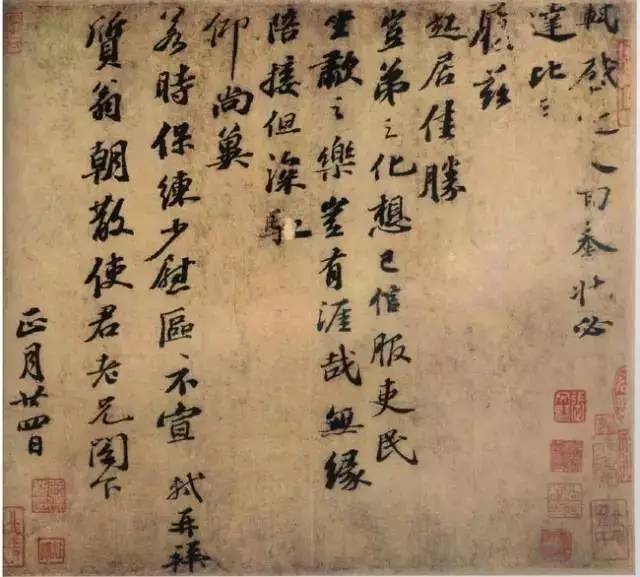 軾啟近人回奉狀必
達比日
履茲
起居佳勝
豈弟之化想已信服吏民
坐歗之樂豈有涯哉無緣
陪接但深馳
仰尚冀
若時保練少慰區々不宣 軾再拜
質翁朝散使君老兄閣下
正月廿四日